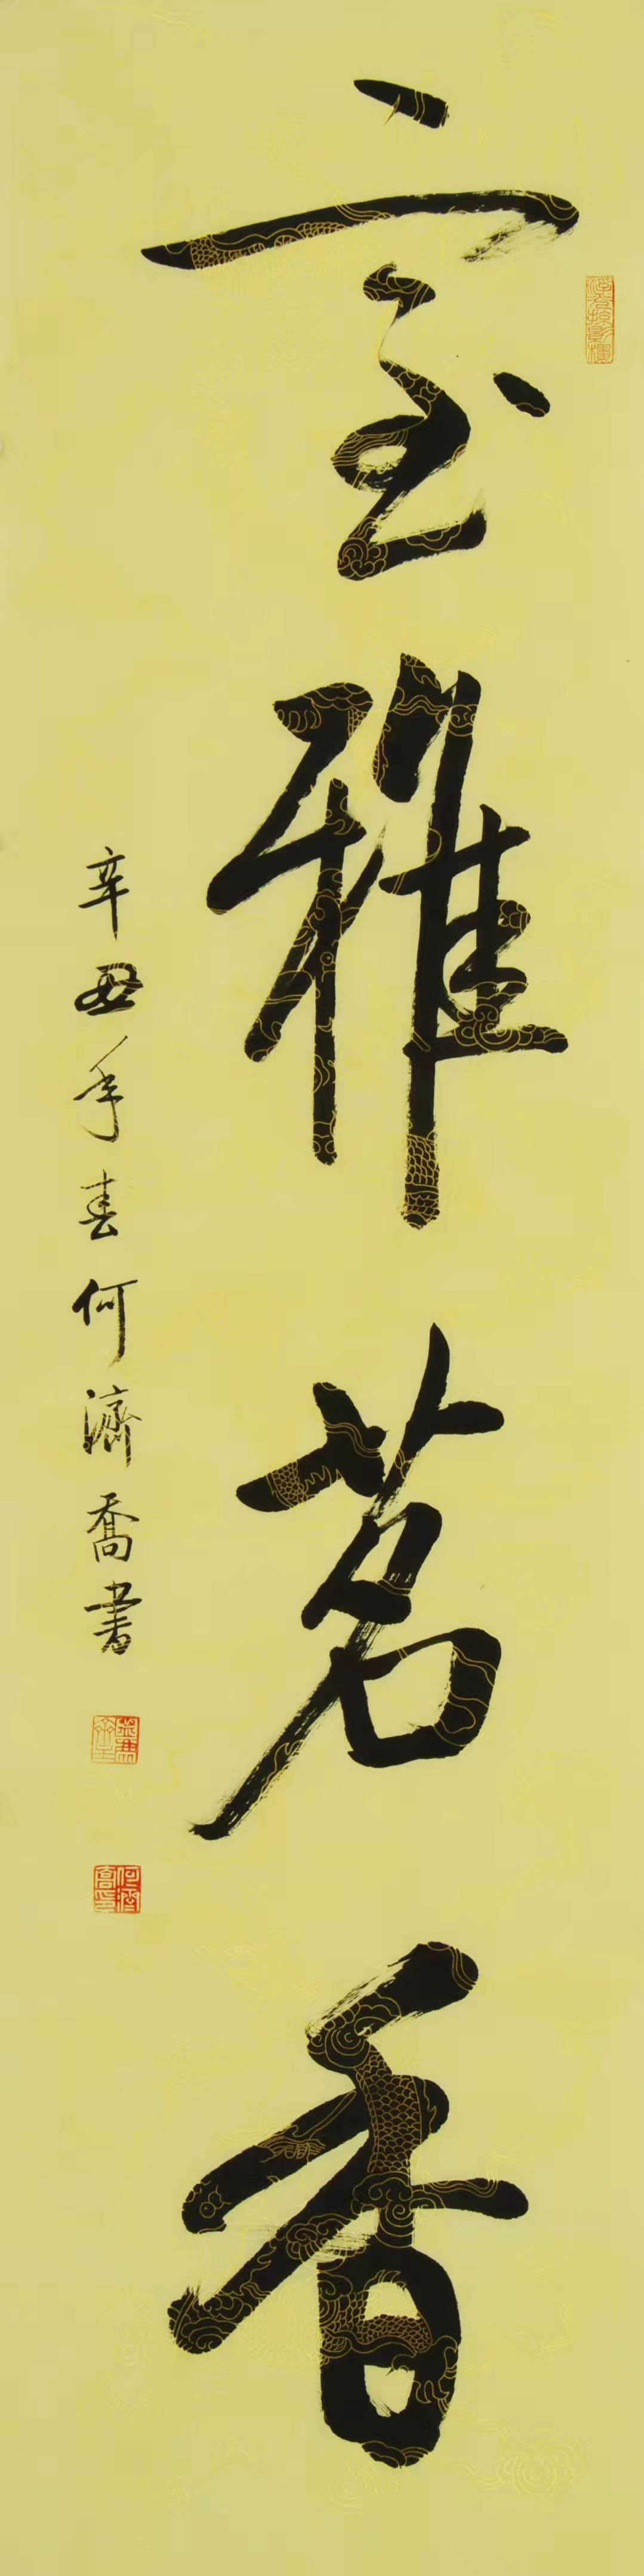 室雅茗香
辛丑年春何濟喬書